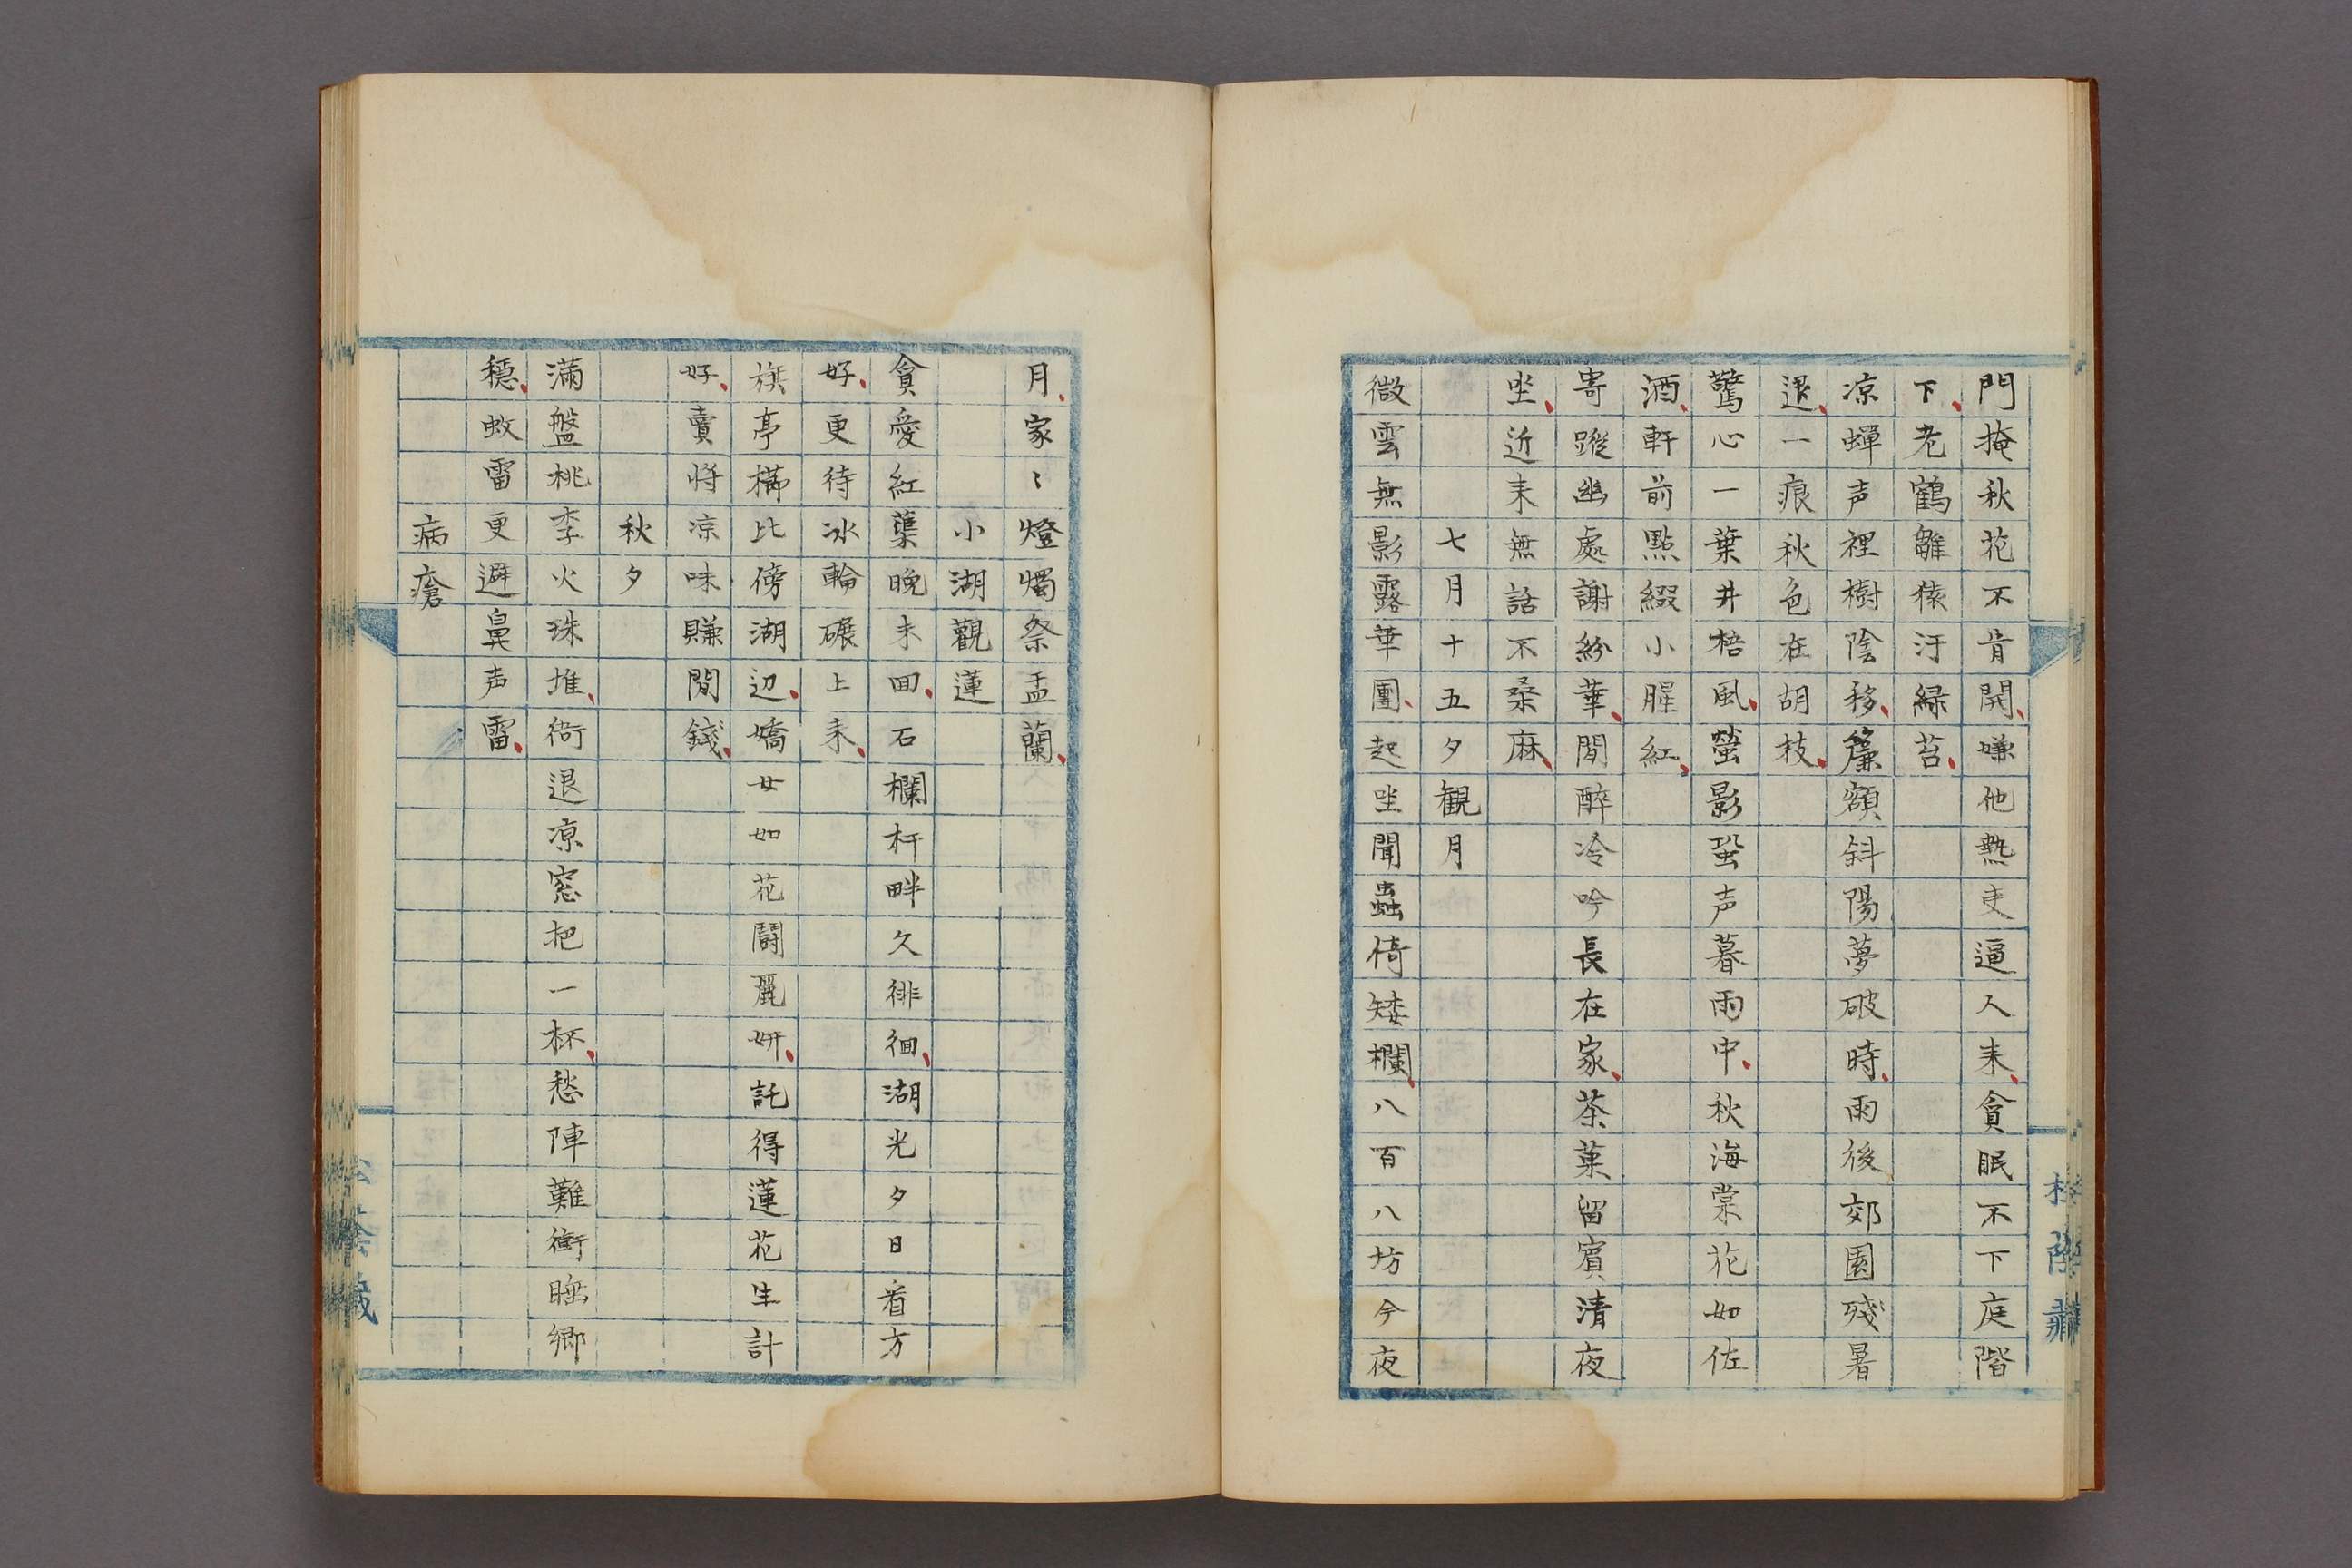 門掩秋花不肯開嫌他熱吏逼人来貪眠不下庭階
下老鶴雛猿汙緑苔
凉蟬声裡樹陰移簾額斜陽夢破時雨後郊園残暑
退一痕秋色在胡枝
驚心一葉井梧風螢影蛩声暮雨中秋海棠花如佐
酒軒前點綴小腥紅
寄蹤幽處謝紛華閒醉冷吟長在家茶菓留賓清夜
坐近来無話不桑麻
七月十五夕観月
微雲無影露華團起坐聞蟲倚矮欄八百八坊今夜
月家〻燈燭祭盂蘭
小湖觀蓮
貪愛紅蕖晩未回石欄杆畔久徘徊湖光夕日看方
好更待冰輪碾上来
旗亭櫛比傍湖辺嬌女如花鬪麗妍託得蓮花生計
好賣将凉味賺閒錢
秋夕
満盤桃李火珠堆衙退凉窓把一杯愁陣難衝睡郷
穏蚊雷更避鼻声雷
病瘡